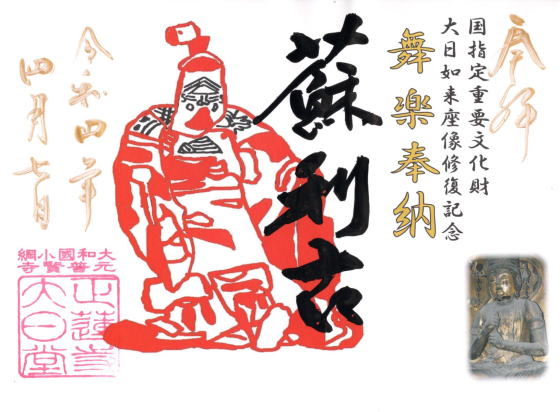 奉拝
国指定重要文化財
大日如来座像修復記念
舞楽奉納
蘇利古
令和四年
四月七日
大和国小綱
元普賢寺
正蓮寺
大日堂